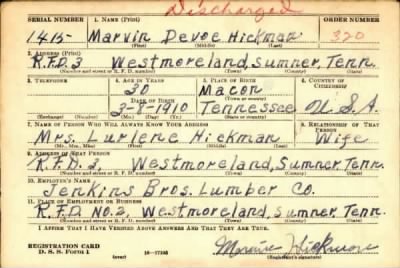 Discharged
SERIAL NUMBER 1. NAME (Print) ORDER NUMBER
1415- Marvin Devoe Hickman 320
(First) (Middle) (Last)
2. ADDRESS (Print)
R.F.D. 3 Westmoreland, Sumner, Tenn.
(Number and street or R. F. D. number) (Town) (County) (State)
3. TELEPHONE 4. AGE IN YEARS 5. PLACE OF BIRTH 6. COUNTRY OF CITIZENSHIP
30 Macon
DATE OF BIRTH (Town or county)
3-8-1910 Tennessee U.S.A.
(Exchange) (Number) (Mo.) (Day) (Yr.) (State or country)
7. NAME OF PERSON WHO WILL ALWAYS KNOW YOUR ADDRESS 8. RELATIONSHIP OF THAT PERSON
Mrs. Lurlene Hickman Wife
(Mr., Mrs., Miss) (First) (Middle) (Last)
9. ADDRESS OF THAT PERSON
R.F.D. 3, Westmoreland, Sumner, Tenn.
(Number and street or R. F. D. number) (Town) (County) (State)
10. EMPLOYER'S NAME
Jenkins Bros. Lumber Co.
11. PLACE OF EMPLOYMENT OR BUSINESS
R.F.D. No. 2, Westmoreland, Sumner, Tenn.
(Number and street or R. F. D. number) (Town) (County) (State)
I AFFIRM THAT I HAVE VERIFIED ABOVE ANSWERS AND THAT THEY ARE TRUE.
REGISTRATION CARD
D. S. S. Form 1 (over) Hickman
(Registrant's signature)